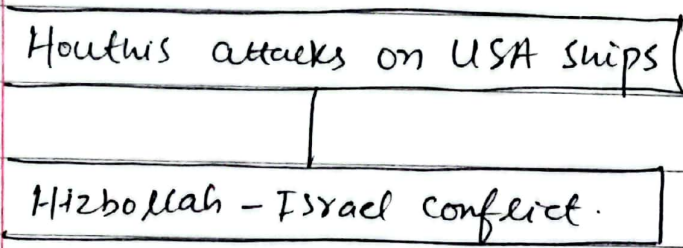 Houthis attacks on USA ships
Hizbollah - Israel conflict.